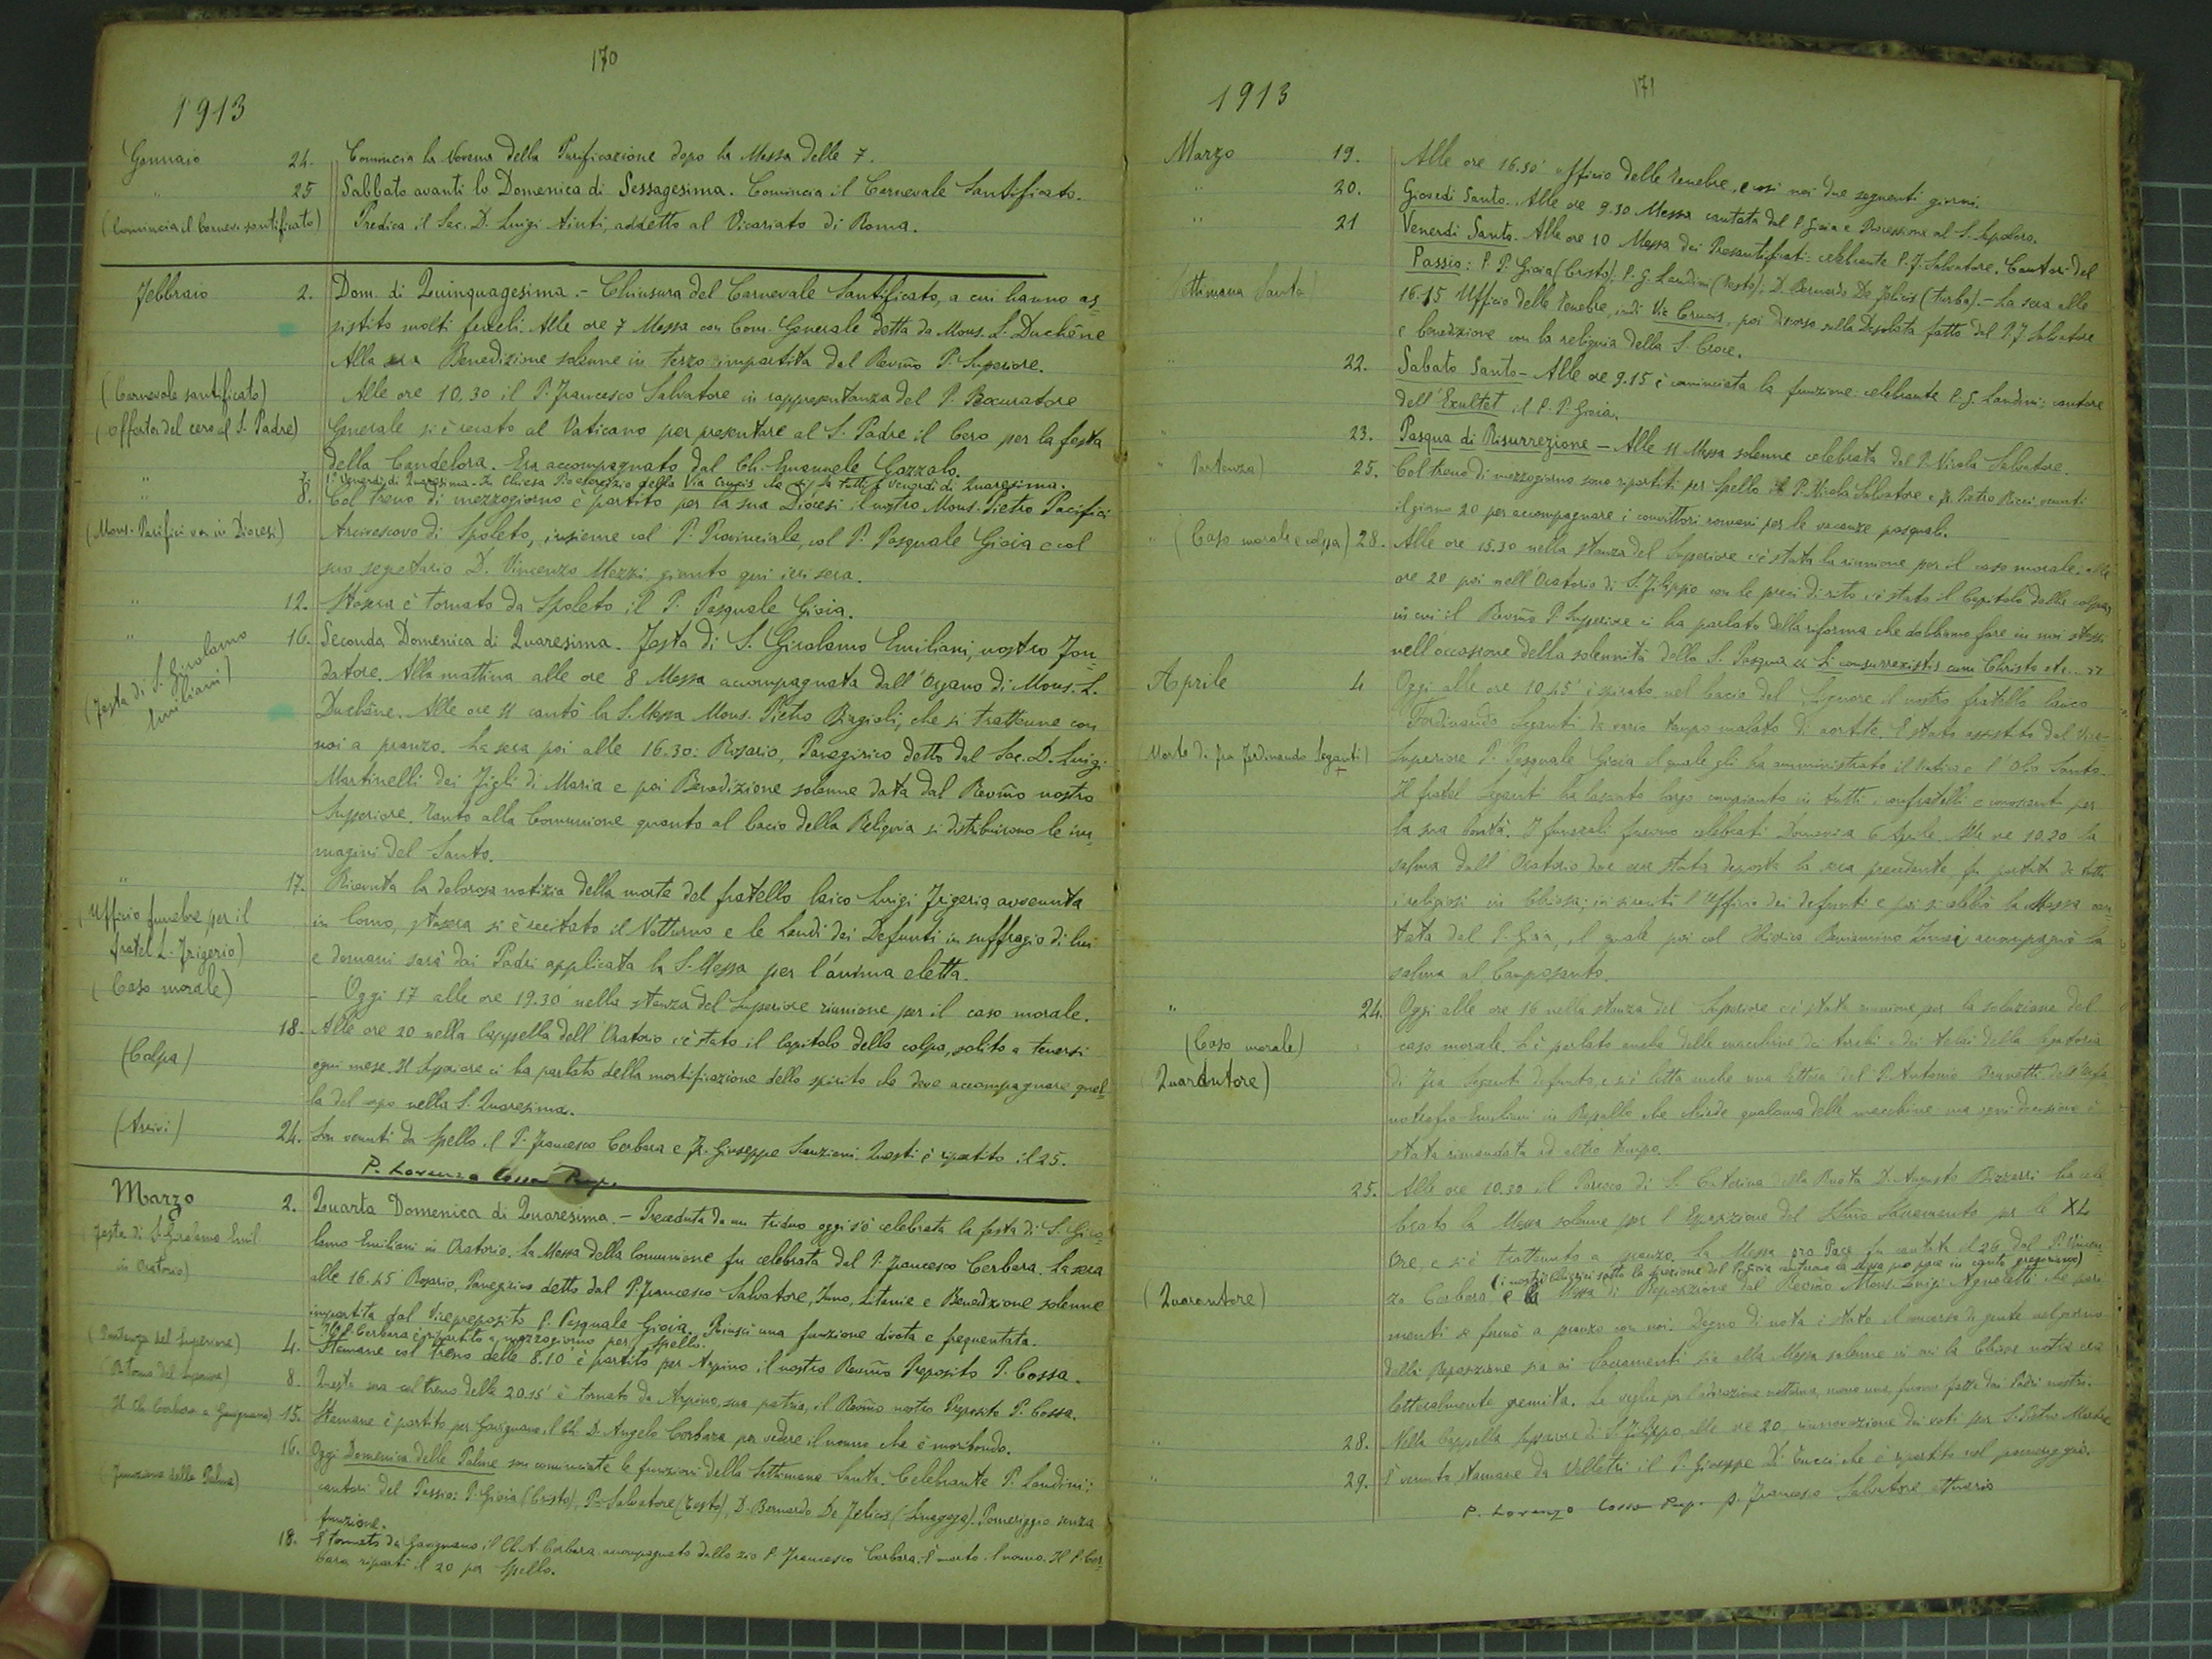 170
1913
Gennaio 24. Comincia la Novena della Purificazione dopo la Messa delle 7.
" 25 Sabbato avanti la Domenica di Sessagesima. Comincia il Carnevale Santificato.
(Comincia il Carnev. santificato) Predica il Sac. D. Luigi Tinti, addetto al Vicariato di Roma.
Febbraio 2. Dom. di Quinquagesima. - Chiusura del Carnevale Santificato, a cui hanno as=
sistito molti fedeli. Alle ore 7 Messa con Com. Generale detta da Mons. L. Duchêne
Alla sera Benedizione solenne in terzo impartita dal Revmo P. Superiore.
(Carnevale santificato) Alle ore 10,30 il P. Francesco Salvatore in rappresentanza del P. Procuratore
(Offerta del cero al S. Padre) Generale si è recato al Vaticano per presentare al S. Padre il Cero per la festa
della Candelora. Era accompagnato dal Ch. Emanuele Cazzalo.
" 7. 1° Venerdì di Quaresima - In Chiesa Pio esercizio della Via Crucis che si fa tutti i Venerdì di Quaresima.
8. Col treno di mezzogiorno è partito per la sua Diocesi il nostro Mons. Pietro Pacifici
(Mons. Pacifici va in Diocesi) Arcivescovo di Spoleto, insieme col P. Provinciale, col P. Pasquale Gioia e col
suo segretario D. Vincenzo Mezzi giunto qui ieri sera.
" 12. Stasera è tornato da Spoleto il P. Pasquale Gioia.
" 16. Seconda Domenica di Quaresima. Festa di S. Girolamo Emiliani, nostro Fon=
(Festa di S. Girolamo Emiliani) datore. Alla mattina alle ore 8 Messa accompagnata dall'Organo di Mons. L.
Duchêne. Alle ore 11 cantò la S. Messa Mons. Pietro Biagioli, che si trattenne con
noi a pranzo. La sera poi alle 16.30: Rosario, Panegirico detto dal Sac. D. Luigi
Martinelli dei Figli di Maria e poi Benedizione solenne data dal Revmo nostro
Superiore. Tanto alla Comunione quanto al bacio della Reliquia si distribuirono le im=
magini del Santo.
" 17. Ricevuta la dolorosa notizia della morte del fratello laico Luigi Frigerio avvenuta
(Ufficio funebre per il in Como, stasera si è recitato il Notturno e le Laudi dei Defunti in suffragio di lui
fratel L. Frigerio) e domani sarà dai Padri applicata la S. Messa per l'anima eletta.
(Caso morale) - Oggi 17 alle ore 19.30 nella stanza del Superiore riunione per il caso morale.
18. Alle ore 20 nella Cappella dell'Oratorio c'è stato il Capitolo della colpa, solito a tenersi
(Colpa) ogni mese. Il Superiore ci ha parlato della mortificazione dello spirito che deve accompagnare quel=
la del corpo nella S. Quaresima.
(Arrivi) 24. Son venuti da Spello il P. Francesco Cerbara e Fr. Giuseppe Scanziani. Questi è ripartito il 25.
P. Lorenzo Cossa Prep.
Marzo 2. Quarta Domenica di Quaresima. - Preceduta da un triduo oggi s'è celebrata la festa di S. Giro=
(Festa di S. Girolamo Emil. lamo Emiliani in Oratorio. La Messa della Comunione fu celebrata dal P. Francesco Cerbara. La sera
in Oratorio) alle 16.45 Rosario, Panegirico detto dal P. Francesco Salvatore, Inno, Litanie e Benedizione solenne
impartita dal Vicepreposito P. Pasquale Gioia. Riuscì una funzione divota e frequentata.
- Il P. Cerbara è ripartito a mezzogiorno per Spello.
(Partenza del Superiore) 4. Stamane col treno delle 8.10 è partito per Arpino il nostro Revmo Preposito P. Cossa.
(Ritorno del Superiore) 8. Questa sera col treno delle 20.15' è tornato da Arpino, sua patria, il Revmo nostro Preposito P. Cossa.
Il Ch. Cerbara a Gavignano) 15. Stamane è partito per Gavignano il Ch. D. Angelo Cerbara per vedere il nonno che è moribondo.
16. Oggi Domenica delle Palme son cominciate le funzioni della Settimana Santa. Celebrante P. Landini;
(Funzione delle Palme) cantori del Passio: P. Gioia (Cristo), P. Salvatore (Testo), D. Bernardo De Felicis (Sinagoga). Pomeriggio senza
funzione.
18. È tornato da Gavignano il Ch. A. Cerbara accompagnato dallo zio P. Francesco Cerbara. È morto il nonno. Il P. Cer=
bara ripartì il 20 per Spello.
171
1913
Marzo 19. Alle ore 16.30' ufficio delle Tenebre, e così nei due seguenti giorni.
" 20. Giovedì Santo. Alle ore 9.30 Messa cantata dal P. Gioia e Processione al S. Sepolcro.
" 21 Venerdì Santo. Alle ore 10 Messa dei Presantificati: celebrante P. F. Salvatore. Cantori del
Passio: P. P. Gioia (Cristo); P. G. Landini (Testo); D. Bernardo De Felicis (turba). - La sera alle
Settimana Santa 16.15 Ufficio delle Tenebre, indi Via Crucis, poi discorso sulla Desolata fatto dal P. F. Salvatore
e benedizione con la reliquia della S. Croce.
" 22. Sabato Santo - Alle ore 9.15 è cominciata la funzione: celebrante P. G. Landini; cantore
dell'Exultet il P. P. Gioia.
" 23. Pasqua di Risurrezione - Alle 11 Messa solenne celebrata dal P. Nicola Salvatore.
" Partenza) 25. Col treno di mezzogiorno sono ripartiti per Spello il P. Nicola Salvatore e Fr. Pietro Ricci venuti
il giorno 20 per accompagnare i convittori romani per le vacanze pasquali.
" (Caso morale e colpa) 28. Alle ore 15.30 nella stanza del Superiore c'è stata la riunione per il caso morale. Alle
ore 20 poi nell'Oratorio di S. Filippo con le preci di rito c'è stato il Capitolo delle colpe,
in cui il Revmo P. Superiore ci ha parlato della riforma che dobbiamo fare in noi stessi
nell'occasione della solennità della S. Pasqua "Si consurrexistis cum Christo etc..."
Aprile 4 Oggi alle ore 10.45' è spirato nel bacio del Signore il nostro fratello laico
Ferdinando Seganti da vario tempo malato di aortite. È stato assistito dal Vice-
(Morte di Fra Ferdinando Seganti) Superiore P. Pasquale Gioia il quale gli ha amministrato il Viatico e l'Olio Santo.
Il fratel Seganti ha lasciato largo compianto in tutti i confratelli e conoscenti per
la sua bontà. I funerali furono celebrati Domenica 6 Aprile. Alle ore 10.30 la
salma dall'Oratorio dove era stata deposta la sera precedente, fu portata da tutti
i religiosi in Chiesa; ivi si recitò l'Ufficio dei defunti e poi si celebrò la Messa can=
tata dal P. Gioia, il quale poi col Chierico Beniamino accompagnò la
salma al Camposanto.
" 24. Oggi alle ore 16 nella stanza del Superiore c'è stata riunione per la soluzione del
(Caso morale) caso morale. Si è parlato anche delle macchine dei torchi e dei telai della legatoria
(Quarantore) di Fra Seganti defunto e si è letta anche una lettera del P. Antonio Brunetti dell'Orfa=
notrofio Emiliani in Rapallo che chiede qualcuna delle macchine ma ogni decisione è
stata rimandata ad altro tempo.
25. Alle ore 10.30 il Parroco di S. Caterina della Ruota D. Augusto Bizzarri ha cele=
brato la Messa solenne per l'Esposizione del SSmo Sacramento per le XL
Ore, e si è trattenuto a pranzo. La Messa pro Pace fu cantata il 26 dal P. Vincen=
(i nostri Chierici sotto la direzione del P. Gioia cantarono la Messa pro pace in canto gregoriano)
(Quarantore) zo Cerbara e la Messa di Reposizione dal Revmo Mons. Luigi Agnoletti che pari=
menti si fermò a pranzo con noi. Degno di nota è stato il concorso di gente nel giorno
della Reposizione sia ai Sacramenti sia alla Messa solenne in cui la Chiesa nostra era
letteralmente gremita. Le veglie per l'adorazione notturna, meno una, furono fatte dai Padri nostri.
" 28. Nella Cappella superiore di S. Filippo alle ore 20, rinnovazione dei voti per S. Pietro Martire.
" 29. È venuto stamane da Velletri il P. Giuseppe Di Tucci che è ripartito nel pomeriggio.
P. Lorenzo Cossa Prep. P. Francesco Salvatore attuario